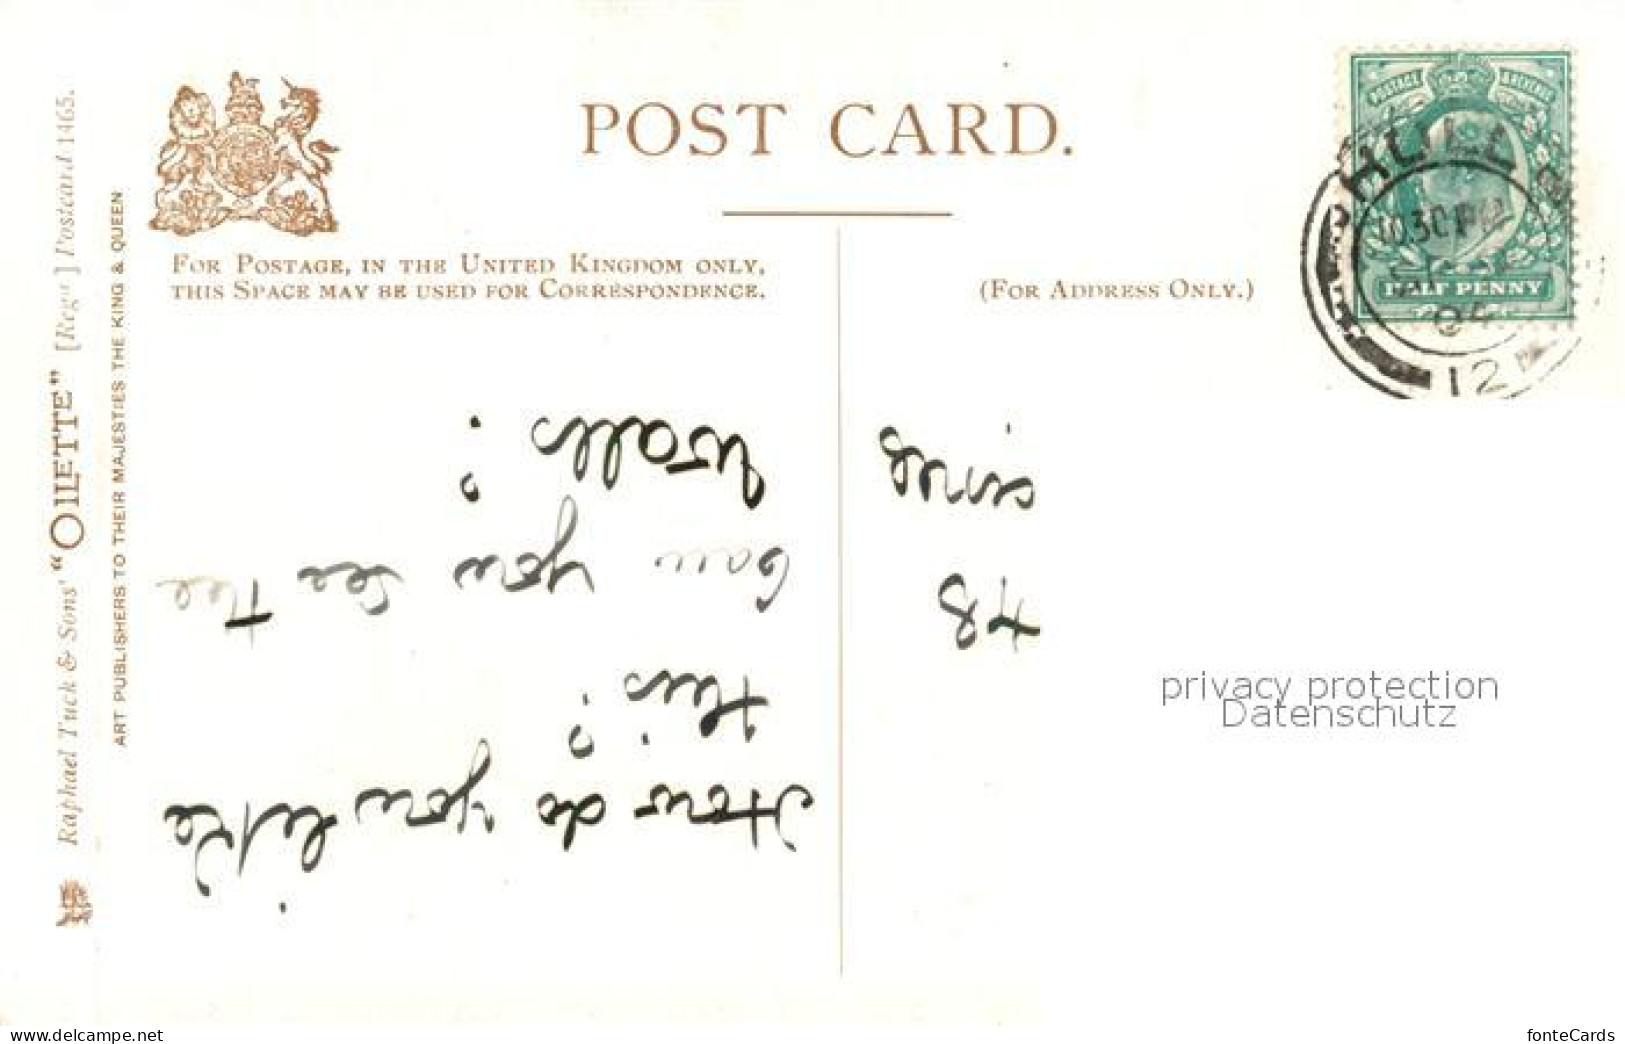 POST CARD.
FOR POSTAGE, IN THE UNITED KINGDOM ONLY,
THIS SPACE MAY BE USED FOR CORRESPONDENCE.
(FOR ADDRESS ONLY.)
Raphael Tuck & Sons' "OILETTE" [Regd] Postcard 1465.
ART PUBLISHERS TO THEIR MAJESTIES THE KING & QUEEN
POSTAGE REVENUE
HALF PENNY
HULL
10.30 PM
12
How do you like
this?
Can you see the
Walls?
48
privacy protection
Datenschutz
www.delcampe.net
fonteCards